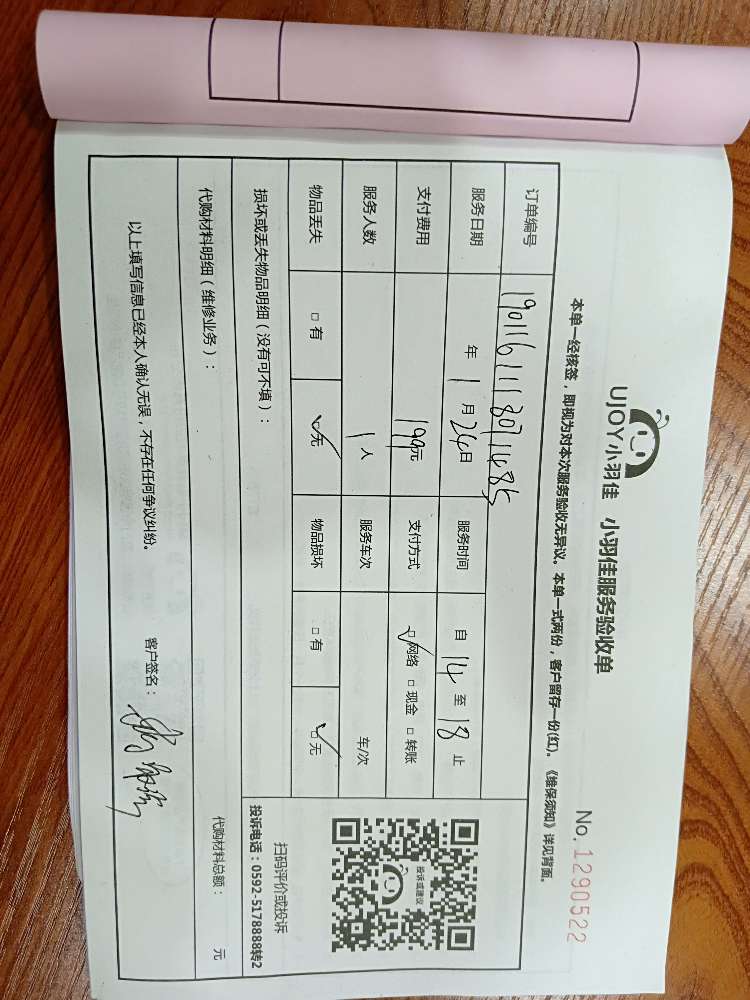 UJOY小羽佳 小羽佳服务验收单
No. 1290522
本单一经核签，即视为对本次服务验收无异议。本单一式两份，客户留存一份(红)。《维保须知》详见背面。
订单编号 1901161118071485
服务日期 年 1 月 24 日 服务时间 自 14 至 18 止
支付费用 199元 支付方式 ☑网络 □现金 □转账
服务人数 1 人 服务车次 车/次
物品丢失 □有 ☑无 物品损坏 □有 ☑无
损坏或丢失物品明细（没有可不填）：
投诉或建议
扫码评价或投诉
投诉电话：0592-5178888转2
代购材料明细（维修业务）：
代购材料总额： 元
以上填写信息已经本人确认无误，不存在任何争议纠纷。
客户签名：